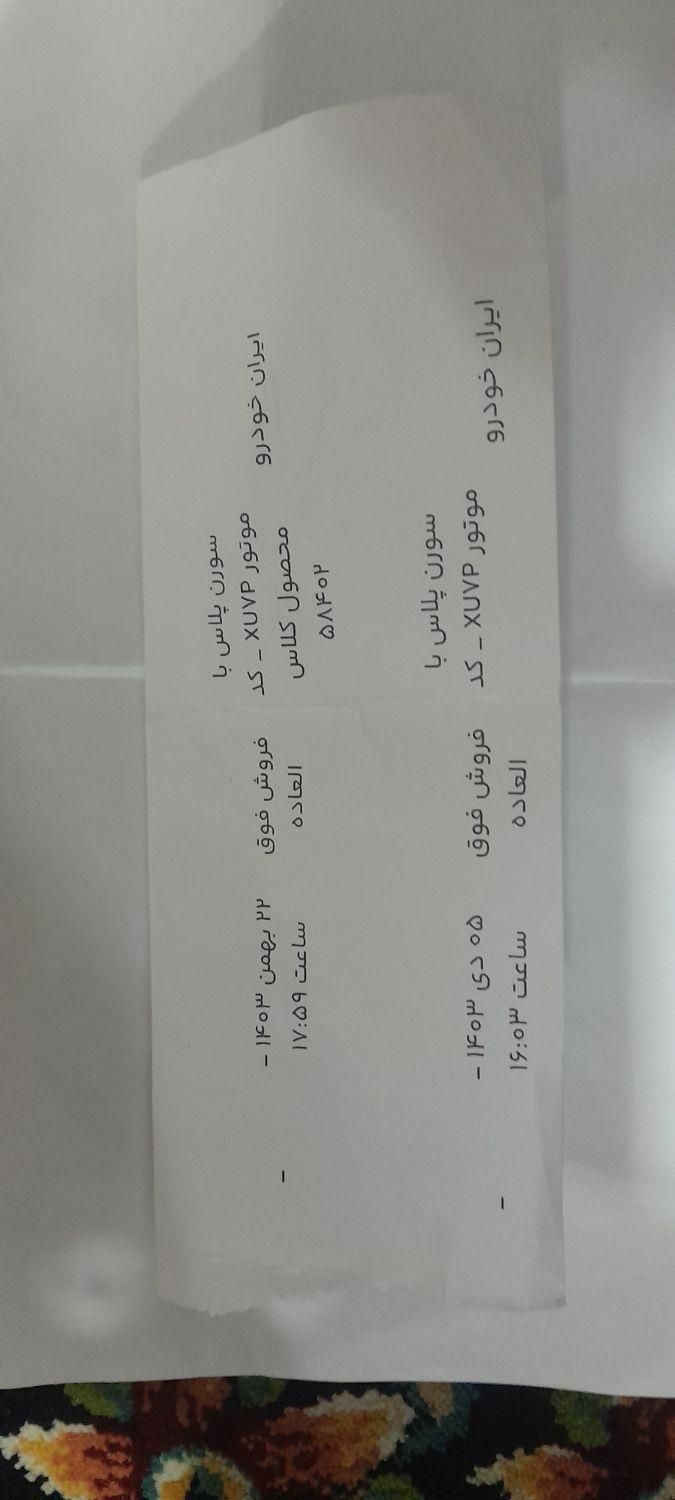 ایران خودرو
سورن پلاس با
موتور XU7P - کد
محصول کلاس
۵۸۴۰۲
فروش فوق
العاده
۲۲ بهمن ۱۴۰۳ -
ساعت ۱۷:۵۹
-
ایران خودرو
سورن پلاس با
موتور XU7P - کد
فروش فوق
العاده
۰۵ دی ۱۴۰۳ -
ساعت ۱۶:۰۳
-